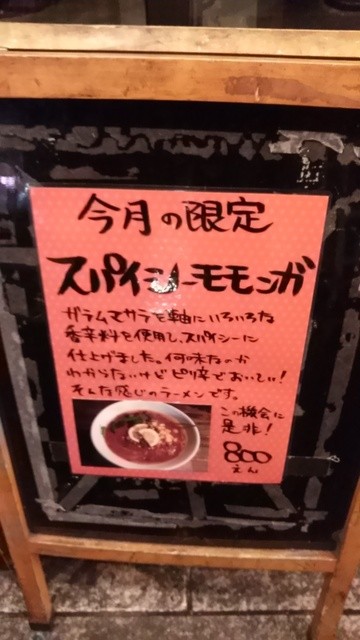 今月の限定
スパイシーモモンガ
ガラムマサラを軸にいろいろな
香辛料を使用し、スパイシーに
仕上げました。何味なのか
わからないけどピリ辛でおいしい!
そんな感じのラーメンです。
この機会に
是非!
800
えん